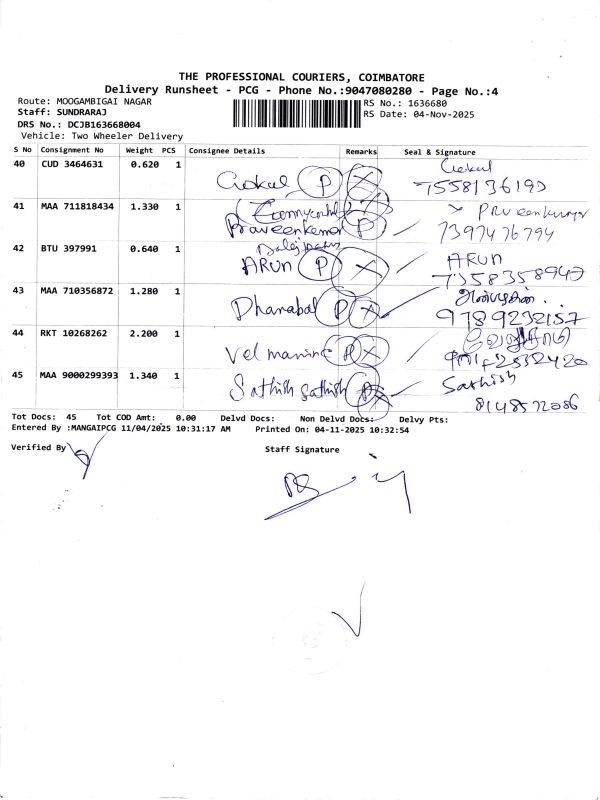 THE PROFESSIONAL COURIERS, COIMBATORE
Delivery Runsheet - PCG - Phone No.:9047080280 - Page No.:4
Route: MOOGAMBIGAI NAGAR RS No.: 1636680
Staff: SUNDRARAJ RS Date: 04-Nov-2025
DRS No.: DCJB163668004
Vehicle: Two Wheeler Delivery
S No Consignment No Weight PCS Consignee Details Remarks Seal & Signature
40 CUD 3464631 0.620 1 Gokul P X Gokul
7558136193
41 MAA 711818434 1.330 1
Praveenkumar P Praveenkumar
7397476794
42 BTU 397991 0.640 1
ARUN P X ARUN
7358358947
43 MAA 710356872 1.280 1 Dhanabal P X
9789232157
44 RKT 10268262 2.200 1 Vel P X
45 MAA 9000299393 1.340 1 Sathish Sathish P X Sathish
8148572086
Tot Docs: 45 Tot COD Amt: 0.00 Delvd Docs: Non Delvd Docs: Delvy Pts:
Entered By :MANGAIPCG 11/04/2025 10:31:17 AM Printed On: 04-11-2025 10:32:54
Verified By Staff Signature